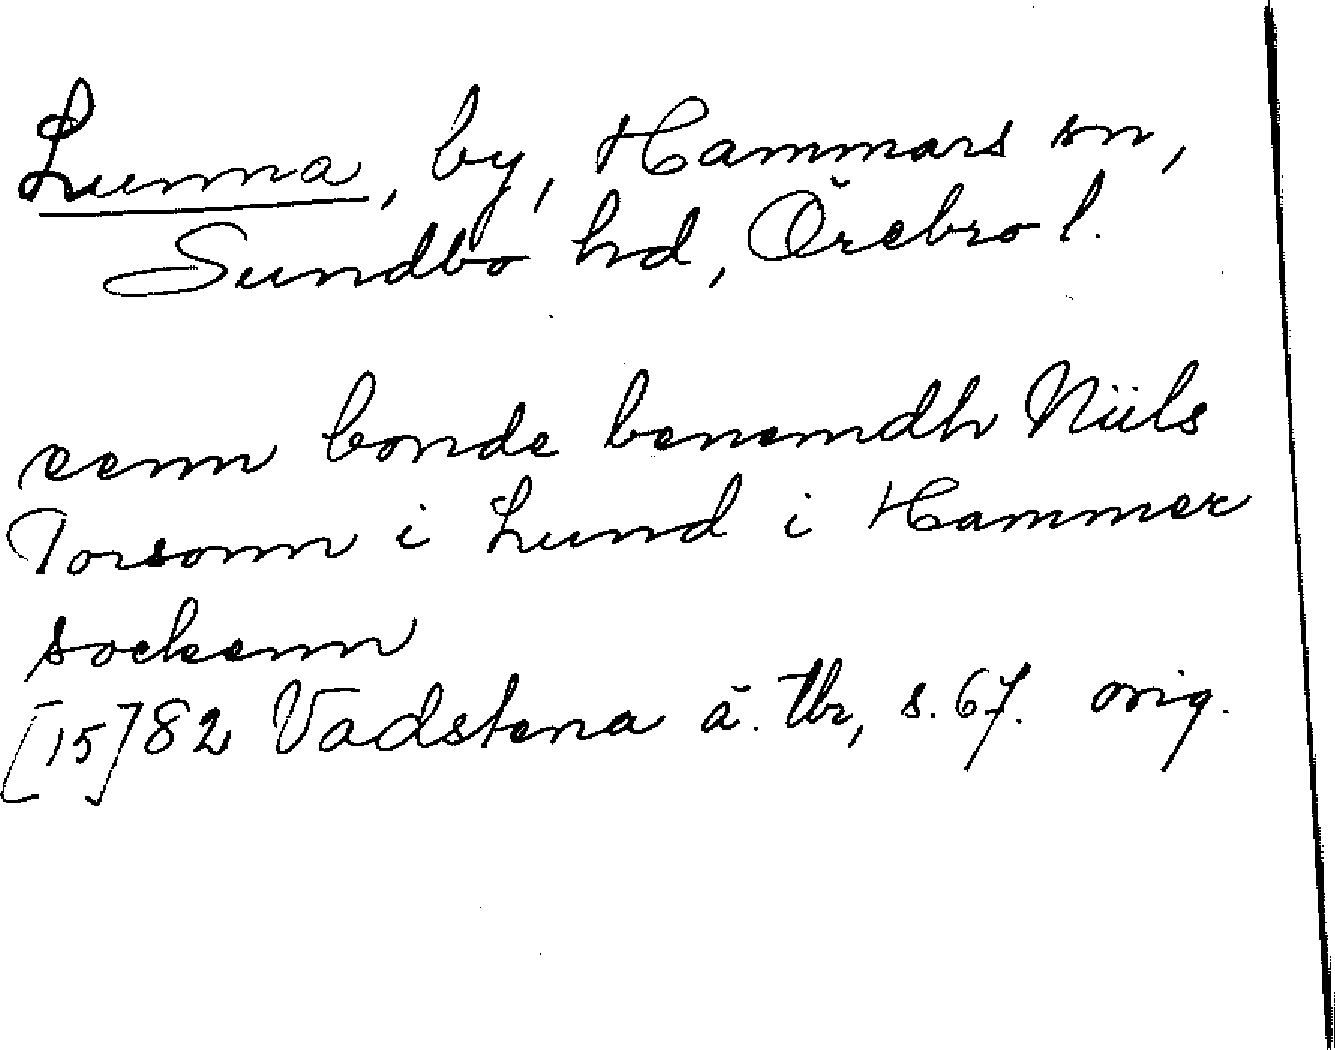 Lunna, by, Hammars sn,
Sundbo hd, Örebro l.
eenn bonde benemdh Niils
Torsonn i Lund i Hammer
sockenn
[15]82 Vadstena ä. tbr, s. 67. orig.